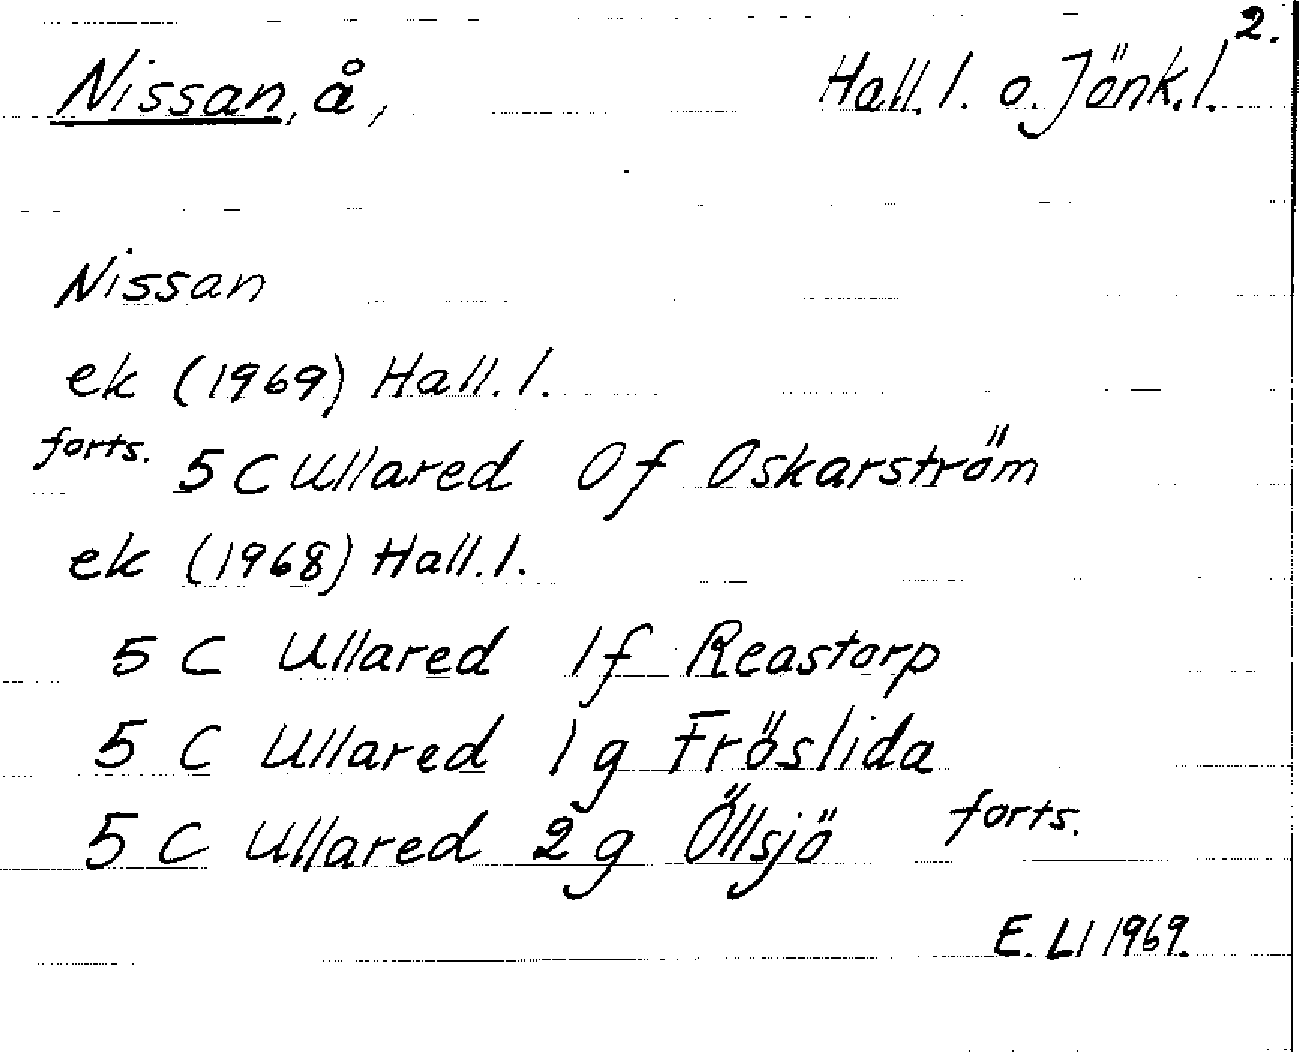 2.
Nissan, å, Hall.l. o. Jönk.l.
Nissan
ek (1969) Hall.l.
forts. 5 C Ullared 0 f Oskarström
ek (1968) Hall.l.
5 C Ullared 1 f Reastorp
5 C Ullared 1 g Fröslida
5 C Ullared 2 g Öllsjö forts.
E. LI 1969.